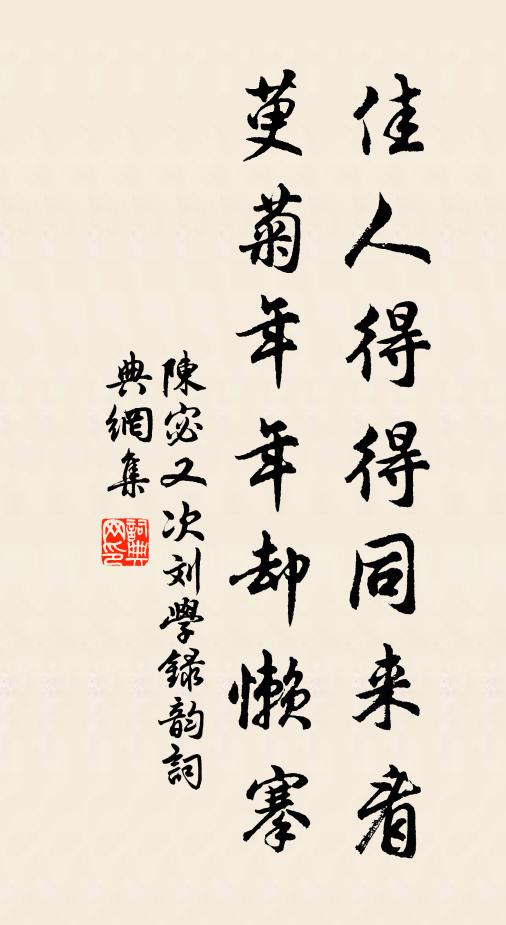 佳人得得同来看
萸菊年年却懒搴
陳宓又次刘學録韵詞
典網集
詞典
网印